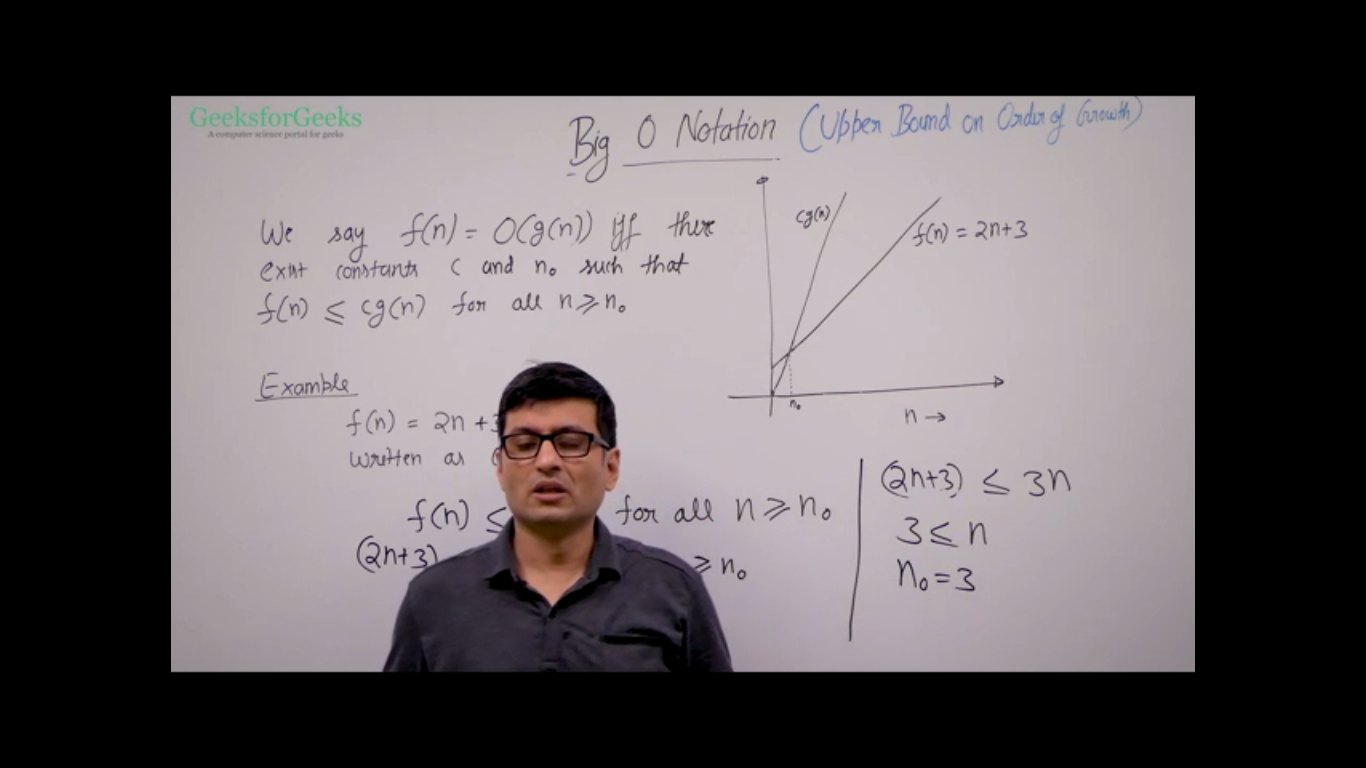 GeeksforGeeks
A computer science portal for geeks
Big O Notation (Upper Bound on Order of Growth)
We say f(n) = O(g(n)) iff there
exist constants c and n₀ such that
f(n) ≤ cg(n) for all n ≥ n₀
Example
f(n) = 2n + 3
Written as
f(n) ≤ for all n ≥ n₀
(2n+3) ≥ n₀
cg(n)
f(n) = 2n+3
n₀
n →
(2n+3) ≤ 3n
3 ≤ n
n₀ = 3